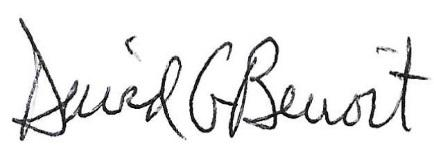 David G Benoit